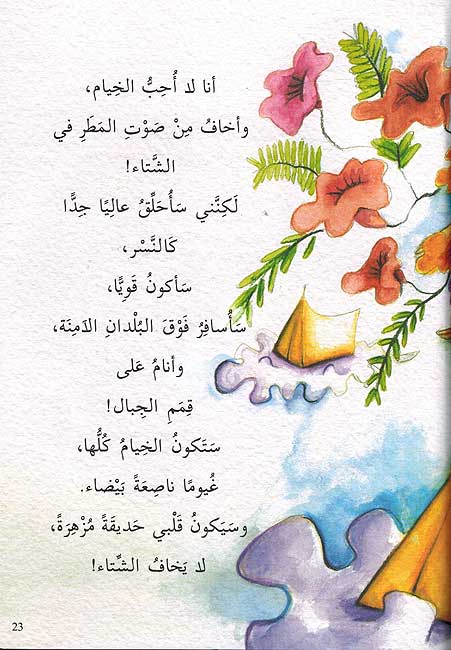 أنا لا أُحِبُّ الخِيام،
وأخافُ مِنْ صَوْتِ المَطَرِ في
الشَّتاء!
لَكِنَّني سَأُحَلِّقُ عالِيًا جِدًّا
كَالنَّسْر،
سَأكونُ قَوِيًّا،
سَأُسافِرُ فَوْقَ البُلْدانِ الآمِنَة،
وأنامُ عَلى
قِمَمِ الجِبال!
سَتَكونُ الخِيامُ كُلُّها،
غُيومًا ناصِعَةً بَيْضاء.
وسَيَكونُ قَلْبي حَديقَةً مُزْهِرَةً،
لا يَخافُ الشِّتاء!
23